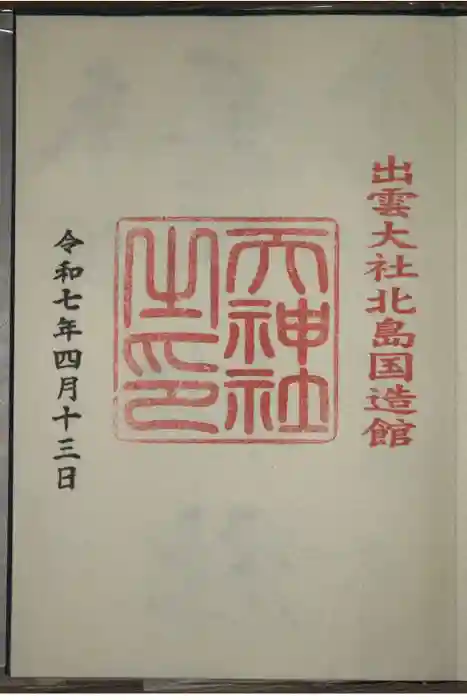 出雲大社北島国造館
天神社
之印
令和七年四月十三日